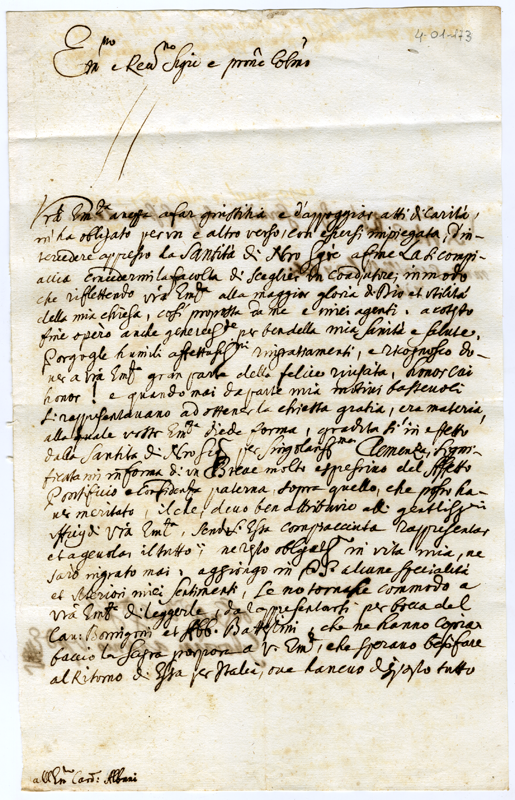 4-01-173
Em̃o e Rev.mo Sig.re e prone Colmo
Vra Em.za auezza a far giustitia e d'appoggiar atti di carità,
m'ha obligato per un e altro verso, con essersi impiegata, d'in-
tercedere appresso la Santità di Nro Sig.re a fine La si compi-
accia concedermi la facoltà di sceglier un Coadjutore; in modo
che riflettendo Vra Em.za alla maggior gloria di Dio et utilità
della mia chiesa, così proposta da me e miei agenti. a cotesto
fine operò anche per ben della mia sanità e salute.
Porgogle humili ringratiamenti, e ricognosco do-
uer a Vra Em.za gran parte della felice riuscita,
honor! e quando mai da parte mia motivi bastevoli
si rappresentavano ad ottener la chiesta gratia, era materia,
alla quale vostra Em.za diede forma, gradita sì in effetto
dalla Santità di Nro Sig.re per Clemenza, signi-
ficatami in forma di un Breve molto espressivo del affetto
Pontificio e confidenza paterna, sopra quello, che posso ha-
ver meritato, il che devo ben attribuire alli gentiliss.mi
uffitij di Vra Em.za, sendosi Essa compiacciuta rappresentar
et agevolar il tutto; ne resto in vita mia, ne
sarò ingrato mai, aggiongo in PS alcune specialità
et ulteriori miei sentimenti, se no tornasse commodo a
Vra Em.za di leggerle, da rappresentarsi per bocca del
Can. et Abb. Battistini, che ne hanno copia.
baccio la Sagra porpora a V. Em.za, che sperano
al Ritorno di Essa per Italia, ove havevo tutto
all Em.o Card: Albani